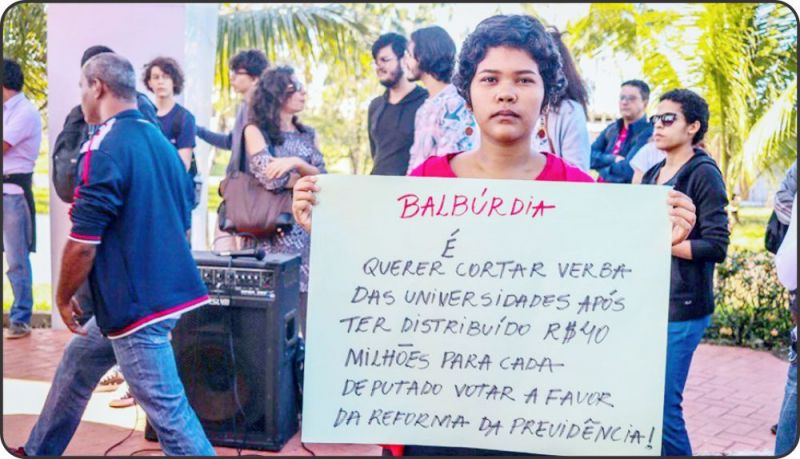 BALBÚRDIA
É
QUERER CORTAR VERBA
DAS UNIVERSIDADES APÓS
TER DISTRIBUÍDO R$40
MILHÕES PARA CADA
DEPUTADO VOTAR A FAVOR
DA REFORMA DA PREVIDÊNCIA!